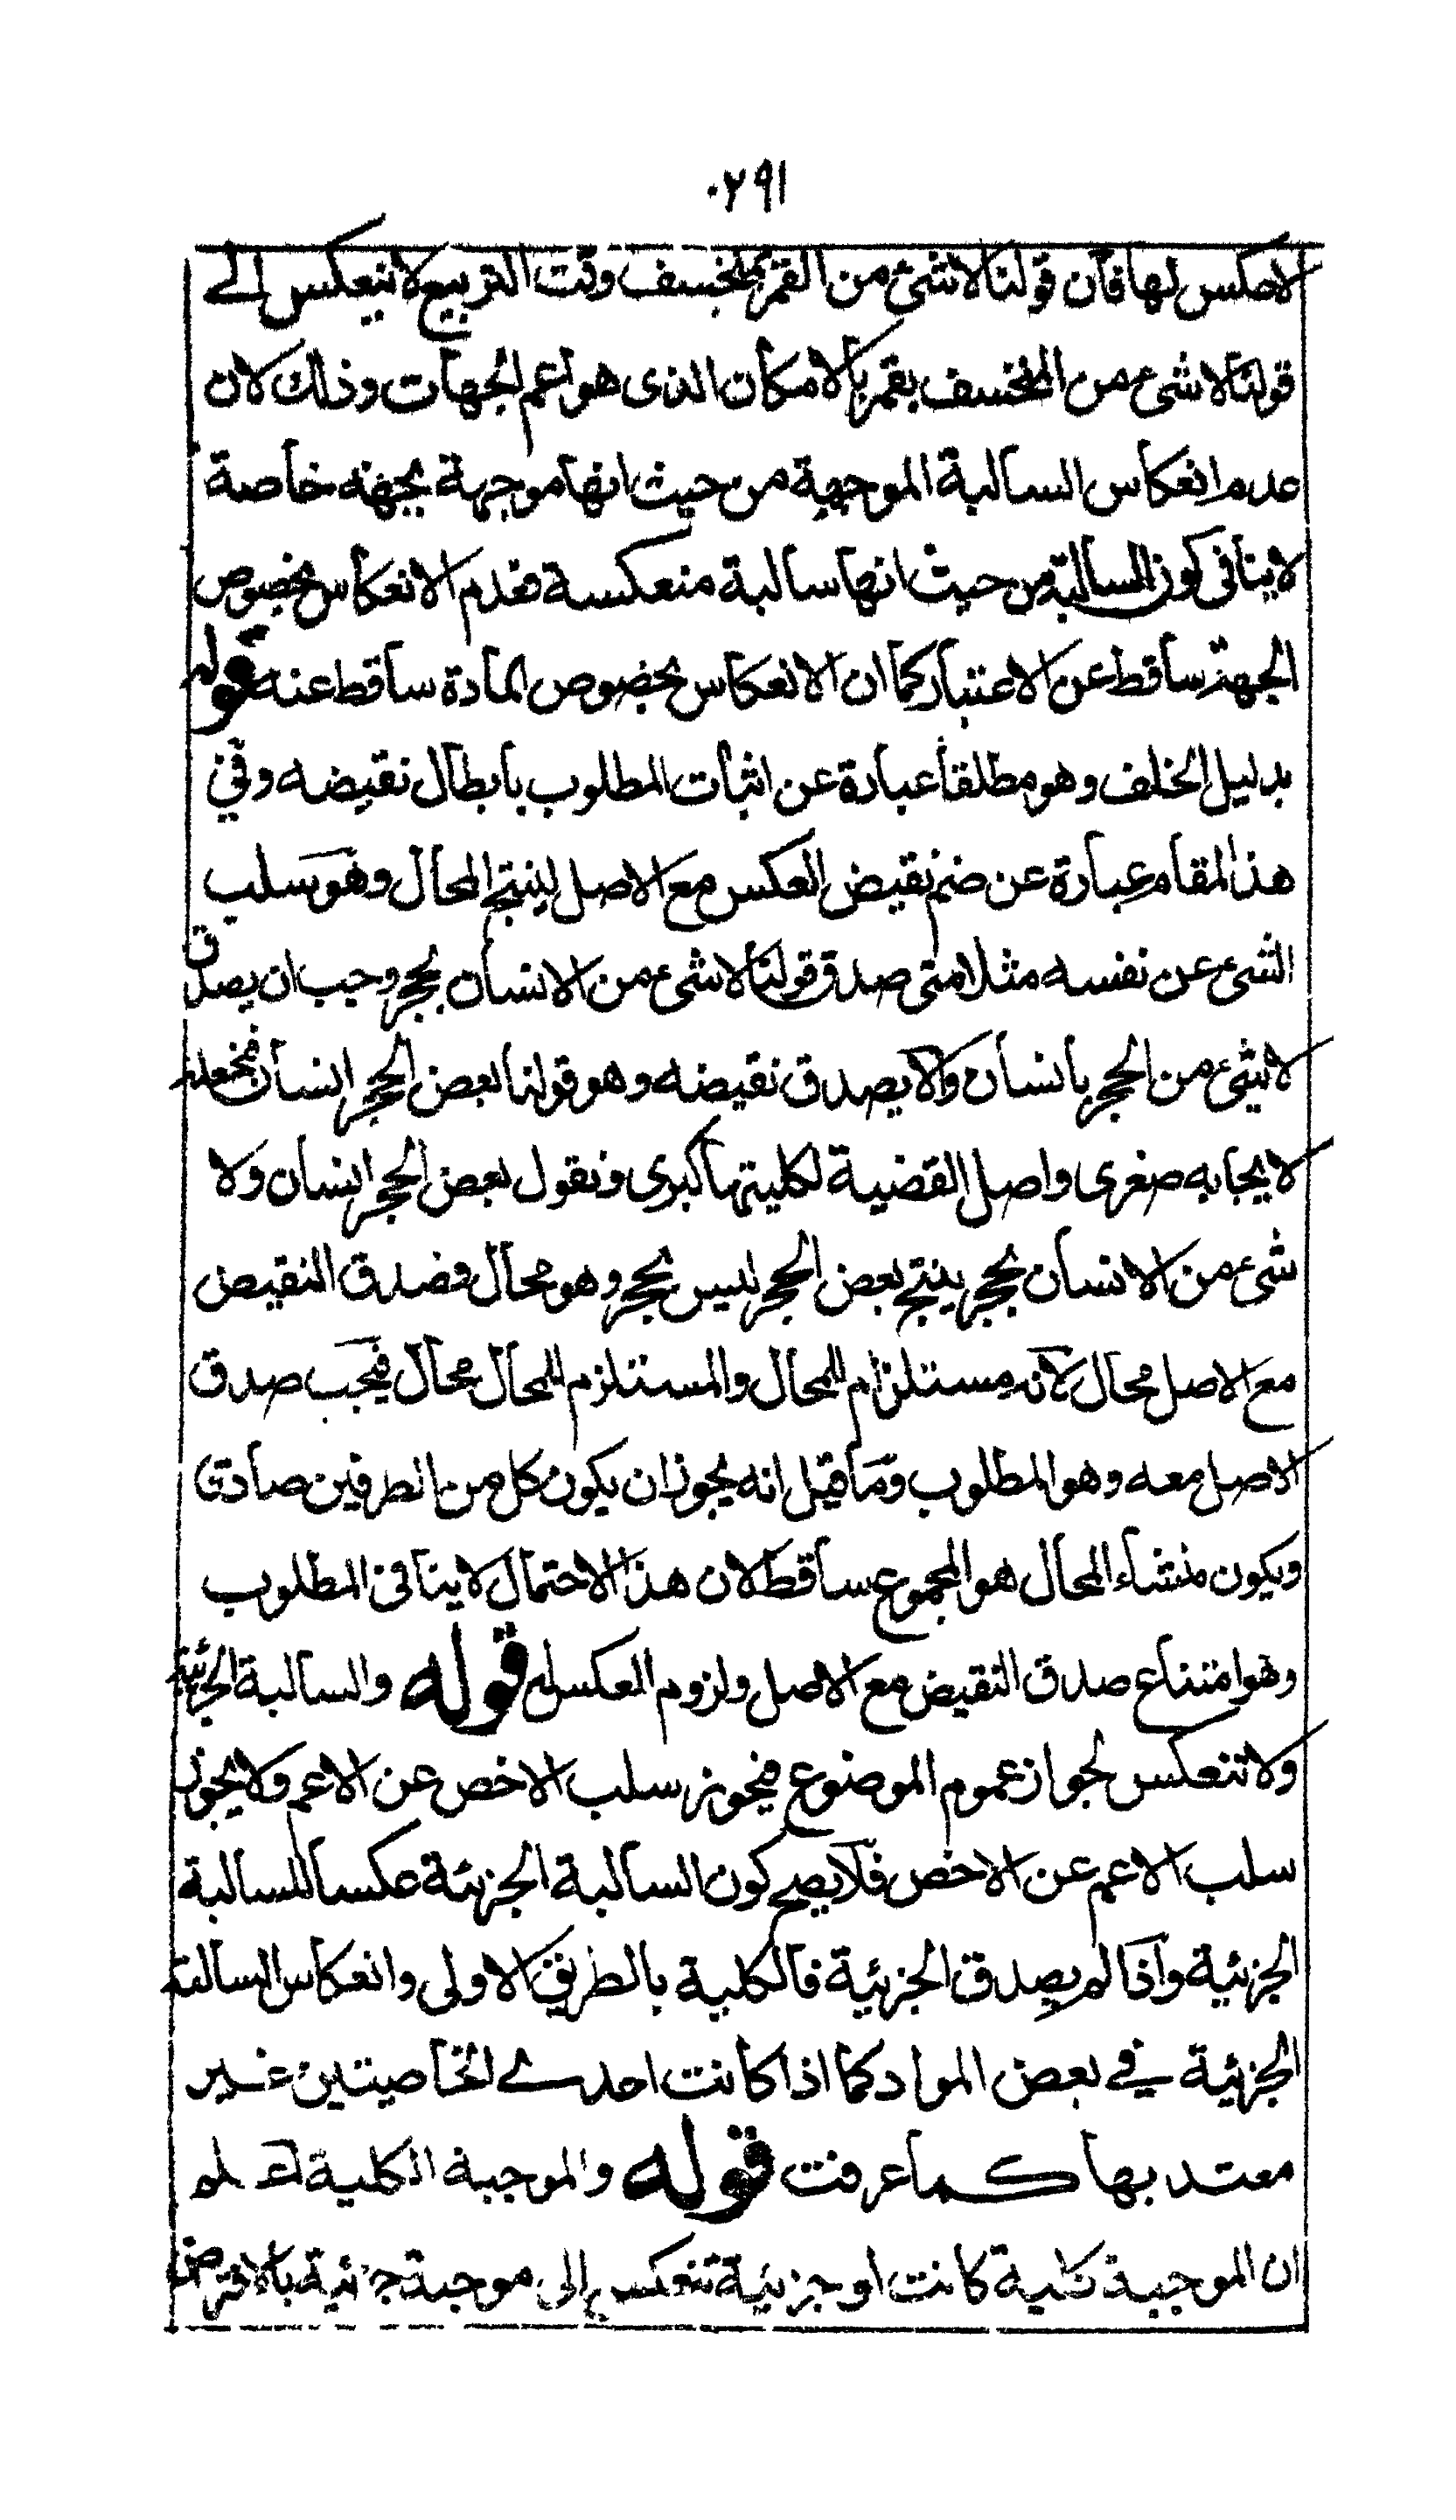 ٠٢٩١
لاعكس لها فأن قولنا لاشئ من القمر بمنخسف وقت التربيع لا ينعكس الے
قولنا لاشئ من المنخسف بقمر بالامكان الذى هو اعم الجهات وذلك لان
عدم انعكاس السالبة الموجهة من حيث انها موجهة بجهة خاصة
لاينافى كون السالبة من حيث انها سالبة منعكسة فعدم الانعكاس بخصوص
الجهة ساقط عن الاعتبار كما ان الانعكاس بخصوص المادة ساقط عنه قوله
بدليل الخلف وهو مطلقا عبارة عن اثبات المطلوب بابطال نقيضه وفي
هذا المقام عبارة عن ضم نقيض العكس مع الاصل لينتج المحال وهو سلب
الشئ عن نفسه مثلا متى صدق قولنا لاشئ من الانسان بحجر وجب ان يصدق
لاشئ من الحجر بانسان والا يصدق نقيضه وهو قولنا بعض الحجر انسان فنجعله
لايجابه صغرى واصل القضية لكليتها كبرى ونقول بعض الحجر انسان ولا
شئ من الانسان بحجر ينتج بعض الحجر ليس بحجر وهو محال فصدق النقيض
مع الاصل محال لانه مستلزم للمحال والمستلزم للمحال محال فيجب صدق
الاصل معه وهو المطلوب وما قيل انه يجوز ان يكون كل من الطرفين صادقا
ويكون منشاء المحال هو المجموع ساقط لان هذا الاحتمال لاينافى المطلوب
وهو امتناع صدق النقيض مع الاصل ولزوم العكس له قوله والسالبة الجزئية
ولا تنعكس لجواز عموم الموضوع فيجوز سلب الاخص عن الاعم ولا يجوز
سلب الاعم عن الاخص فلا يصح كون السالبة الجزئية عكسا للسالبة
الجزئية واذا لم يصدق الجزئية فالكلية بالطريق الاولى وانعكاس السالبة
الجزئية في بعض المواد كما اذا كانت احدے الخاصيتين غير
معتد بها كما عرفت قوله والموجبة الكلية اعلم
ان الموجبة كلية كانت او جزئية تنعكس الى موجبة جزئية بالافتراض